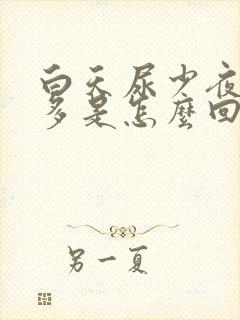 白天尿少夜
多是怎麼回
另一夏